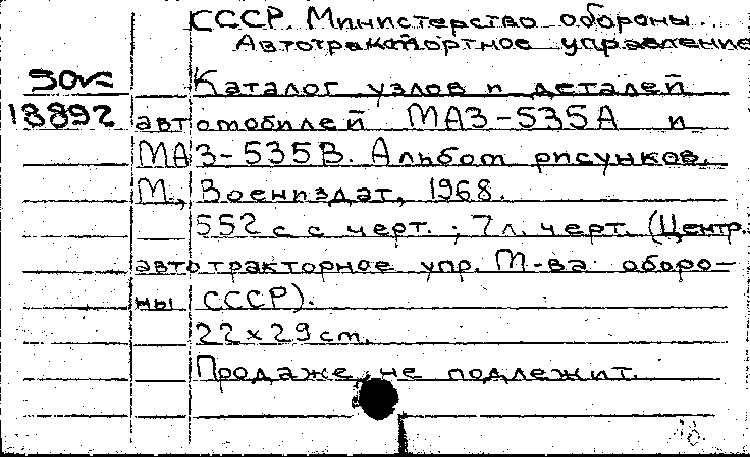 СССР. Министерство обороны...
Автотранспортное управление
Sov.
18892
Каталог узлов и деталей
автомобилей МАЗ-535А и
МАЗ-535В. Альбом рисунков.
М., Воениздат, 1968.
552 с с черт.; 7 л. черт. (Центр.
автотракторное упр. М-ва оборо-
ны СССР).
22x29 cm.
Продаже не подлежит.